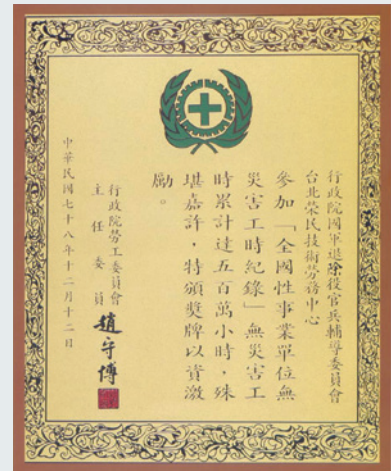 行政院國軍退除役官兵輔導委員會
台北榮民技術勞務中心
參加「全國性事業單位無
災害工時紀錄」無災害工
時累計達五百萬小時，殊
堪嘉許，特頒獎牌以資激
勵。
行政院勞工委員會
主任委員 趙守博
中華民國七十八年十二月十二日